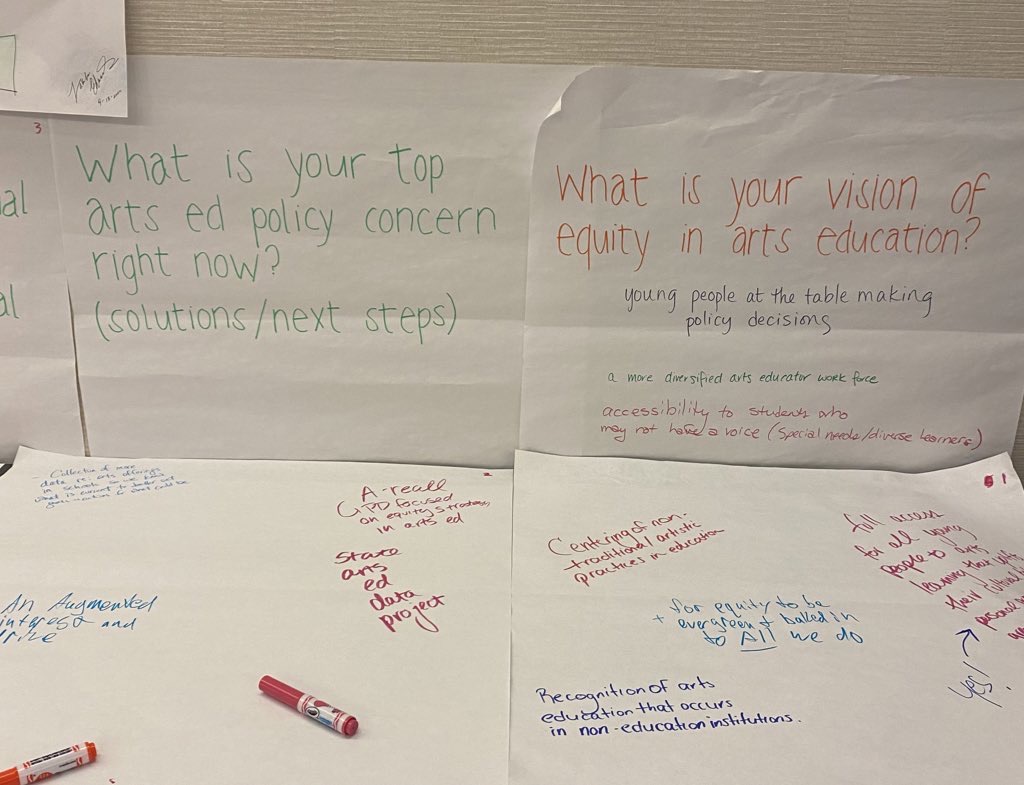 3
al
al
What is your top
arts ed policy concern
right now?
(solutions/next steps)
What is your vision of
equity in arts education?
young people at the table making
policy decisions
a more diversified arts educator work force
accessibility to students who
may not have a voice (special needs/diverse learners)
- Collection of more
data re: arts offerings
in schools so we know
what is current to better set
2
A-recall
PD focused
on equity strategies
in arts ed
State
arts
ed
data
project
An Augmented
interest and
1
Centering of non-
traditional artistic
practices in education
full access
for all young
people to arts
learning that
their cultural
personal
yes!
for equity to be
+ evergreen + baked in
to All we do
Recognition of arts
education that occurs
in non-education institutions.